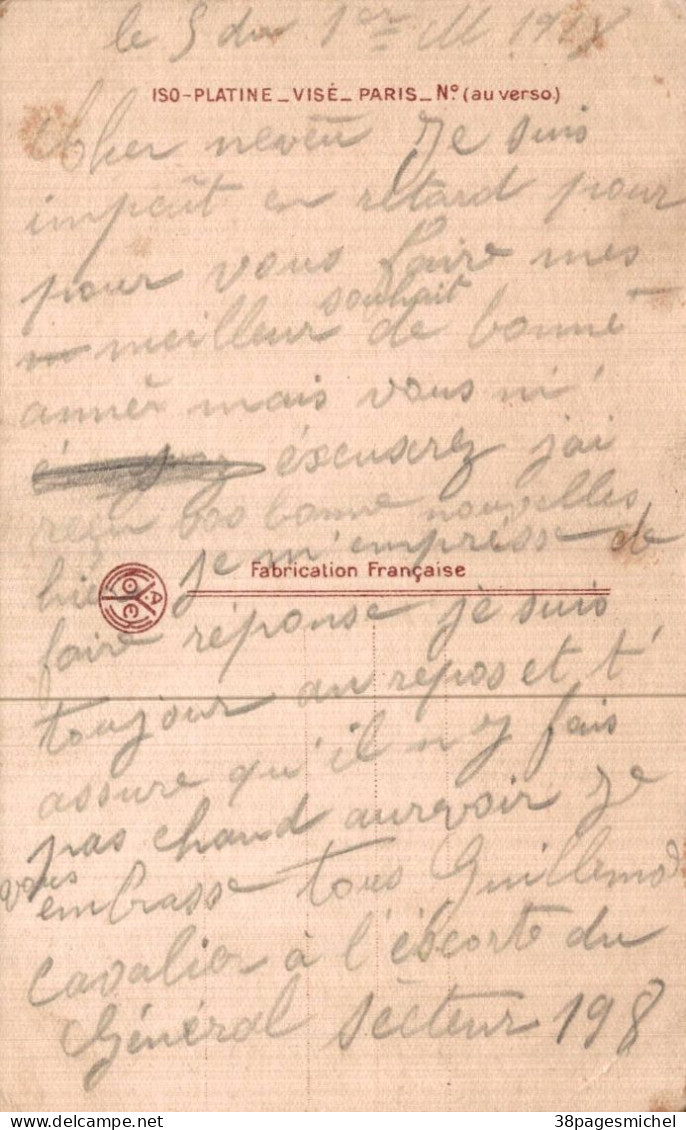 le 5 du 1er M 1918
ISO-PLATINE _ VISÉ _ PARIS _ Nº (au verso)
Cher neveu Je suis
impeût en retard pour
pour vous faire mes
souhait
meilleur de bonne
année mais vous m'
éxcuserez j'ai
reçu vos bonne nouvelles
hier je m'emprésse de
Fabrication Française
faire réponse je suis
toujour au repos et t'
assure qu'il n y fais
pas chaud aurevoir Je
vous
embrasse tous Guillemod
Cavalier à l'éscorte du
Général Sécteur 198
delcampe.net
38pagesmichel